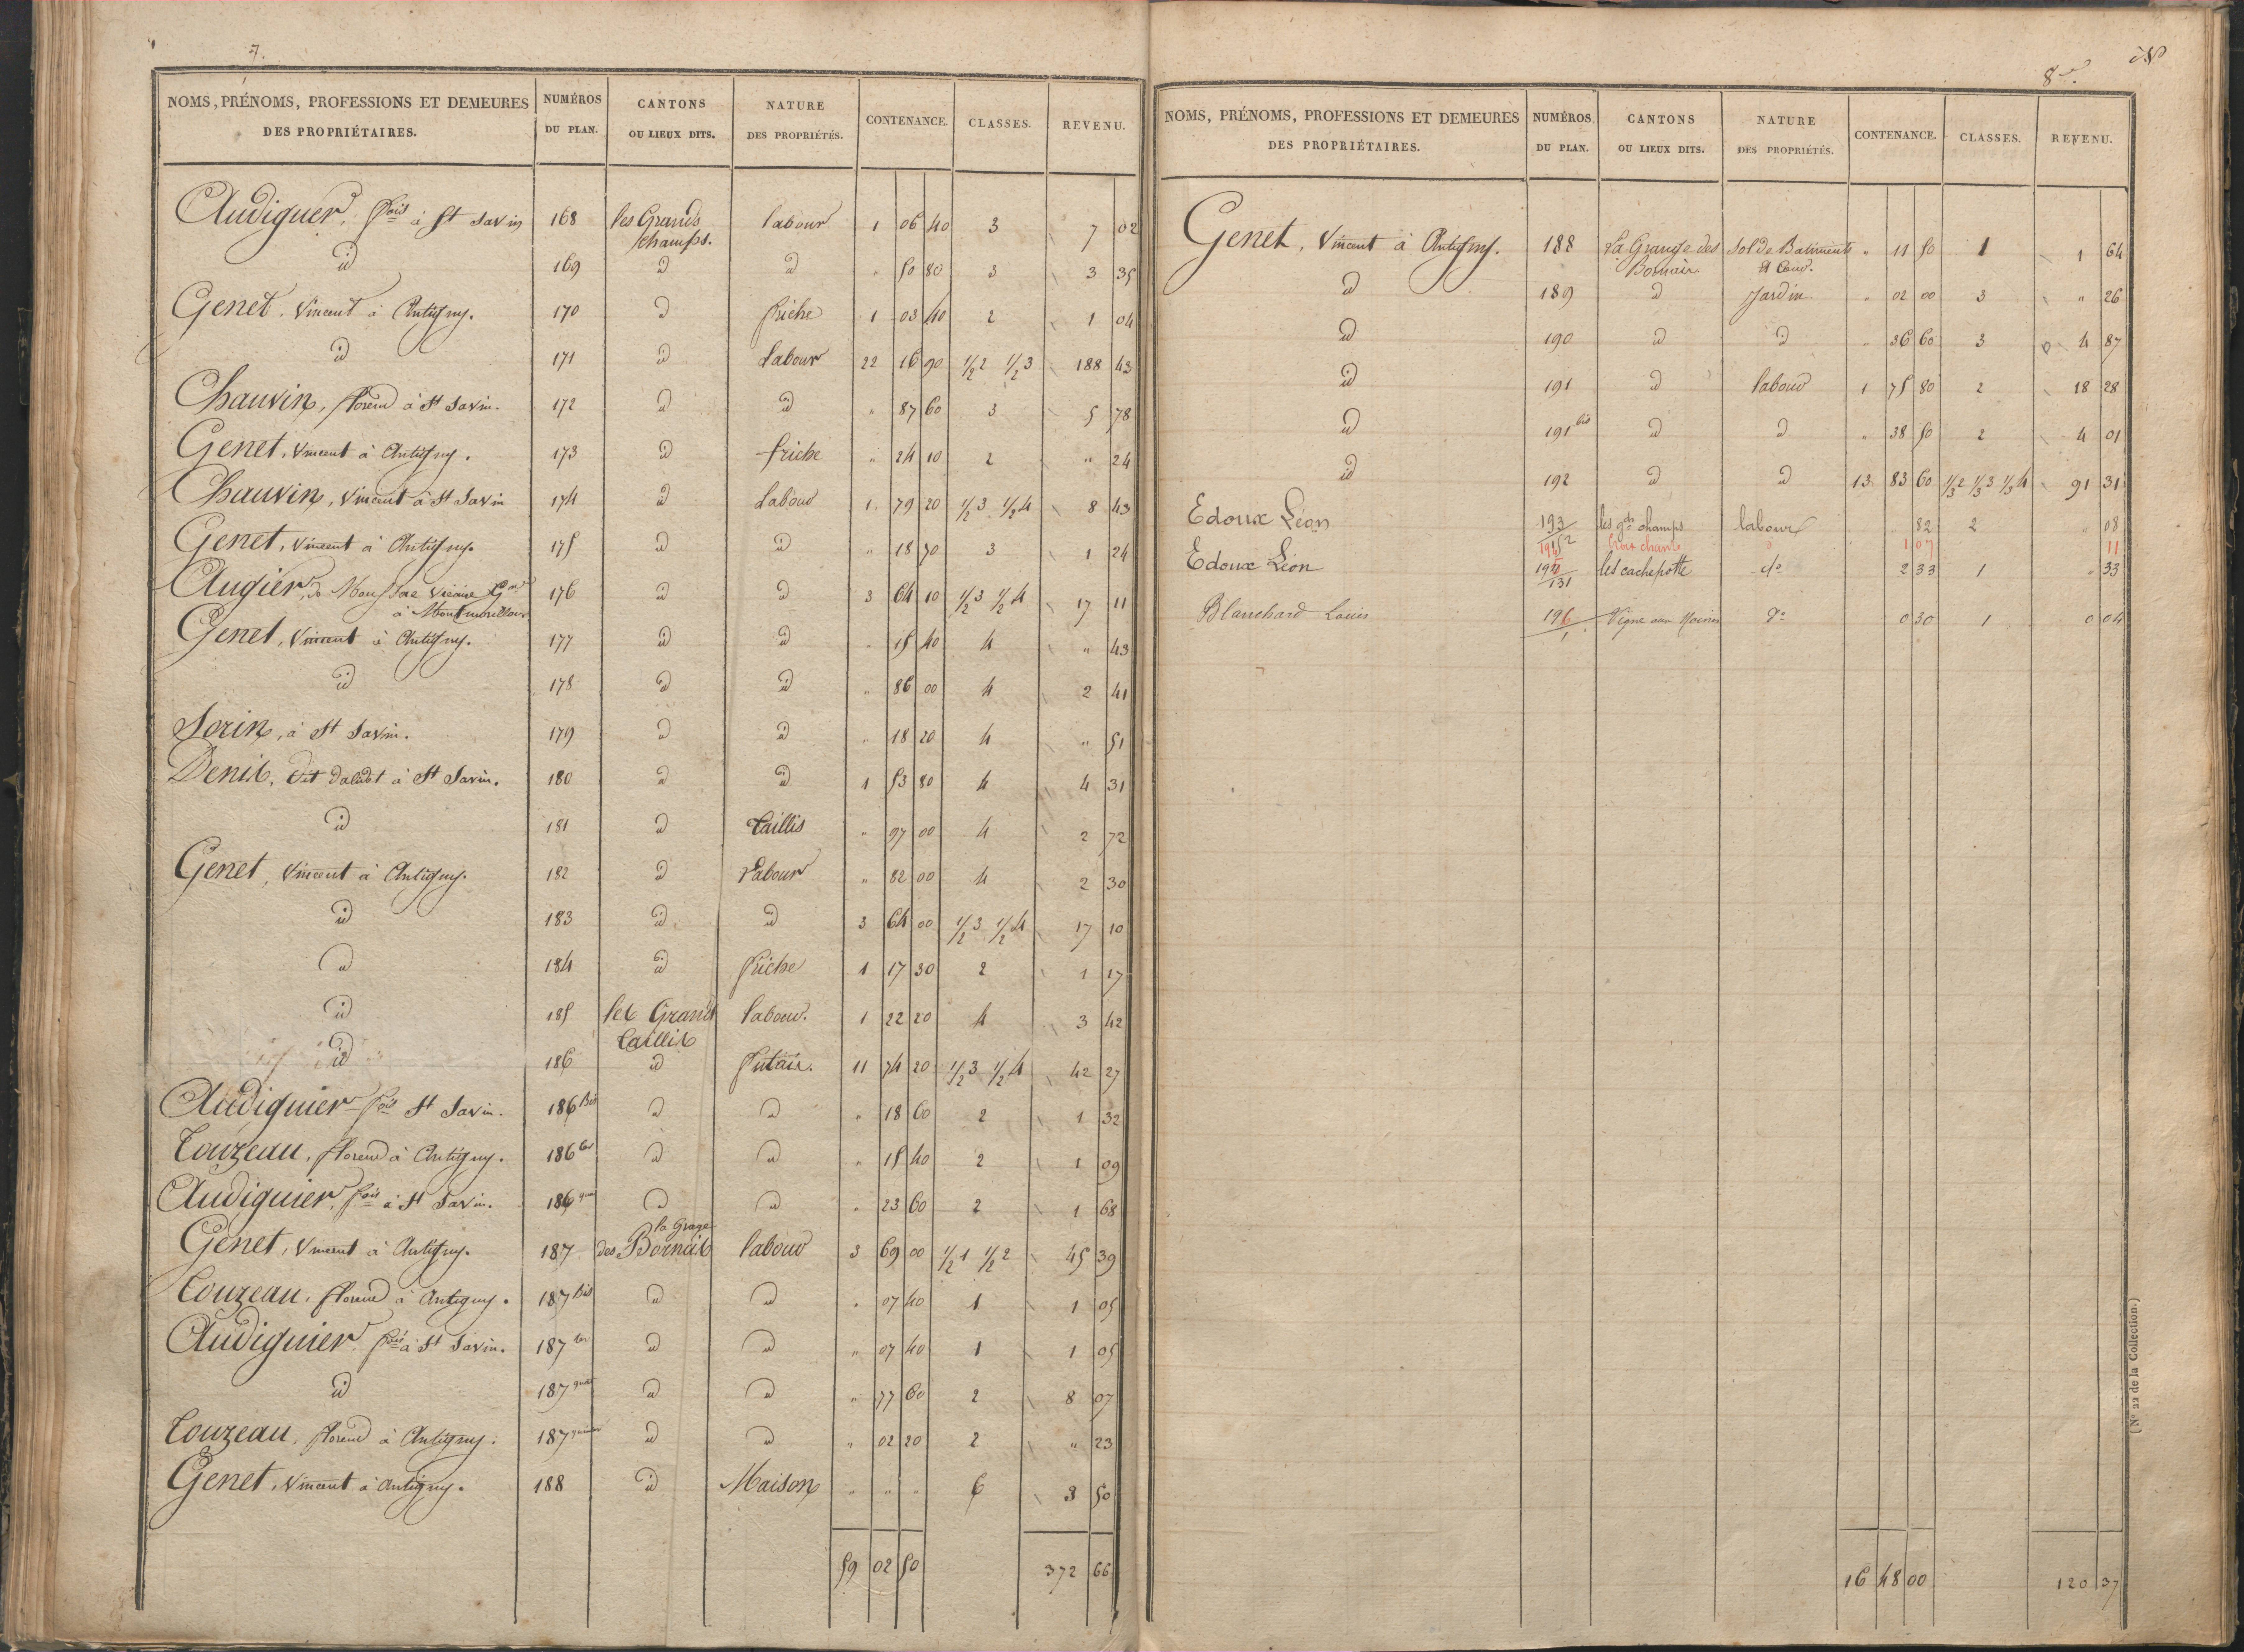 7.
NOMS, PRÉNOMS, PROFESSIONS ET DEMEURES DES PROPRIÉTAIRES. NUMÉROS DU PLAN. CANTONS OU LIEUX DITS. NATURE DES PROPRIÉTÉS. CONTENANCE. CLASSES. REVENU.
Audiguer, fois à St Savin 168 les Grands champs. labour 1 06 40 3 7 02
id 169 id id " 50 80 3 3 35
Genet, Vincent à Antigny. 170 id friche 1 03 40 2 1 04
id 171 id Labour 22 16 90 1/2 2 1/2 3 188 43
Chauvin, florend à St Savin. 172 id id " 87 60 3 5 78
Genet, Vincent à Antigny. 173 id friche " 24 10 2 " 24
Chauvin, Vincent à St Savin 174 id Labour 1 79 20 1/2 3 1/2 4 8 43
Genet, Vincent à Antigny. 175 id id " 18 70 3 1 24
Augier, de Moussac Vicaire Gal à Montmorillon 176 id id 3 64 10 1/2 3 1/2 4 17 11
Genet, Vincent à Antigny. 177 id id " 15 40 4 " 43
id 178 id id " 86 00 4 2 41
Sorin, à St Savin. 179 id id " 18 20 4 " 51
Denis, dit à St Savin. 180 id id 1 53 80 4 4 31
id 181 id taillis " 97 00 4 2 72
Genet, Vincent à Antigny. 182 id Labour " 82 00 4 2 30
id 183 id id 3 64 00 1/2 3 1/2 4 17 10
id 184 id friche 1 17 30 2 1 17
id 185 les Grands taillis labour. 1 22 20 4 3 42
id 186 id futaie. 11 74 20 1/2 3 1/2 4 42 27
Audiguier fois St Savin. 186 Bis id id " 18 60 2 1 32
Touzeau, florend à Antigny. 186 ter id id " 15 40 2 1 09
Audiguier, fois à St Savin. 186 quar id id " 23 60 2 1 68
Genet, Vincent à Antigny. 187 la Grage des Bornais labour 3 69 00 1/2 1 1/2 2 45 39
Touzeau, florend à Antigny. 187 Bis id id " 07 40 1 1 05
Audiguier, fois à St Savin. 187 ter id id " 07 40 1 1 05
id 187 quar id id " 77 60 2 8 07
Touzeau, florend à Antigny. 187 id id " 02 20 2 " 23
Genet, Vincent à Antigny. 188 id Maison " " " 6 8 50
59 02 50 372 66
8
NOMS, PRÉNOMS, PROFESSIONS ET DEMEURES DES PROPRIÉTAIRES. NUMÉROS DU PLAN. CANTONS OU LIEUX DITS. NATURE DES PROPRIÉTÉS. CONTENANCE. CLASSES. REVENU.
Genet, Vincent à Antigny. 188 La Grange des Bornais. Sol de Batiments et Cour. " 11 50 1 1 64
id 189 id Jardin " 02 00 3 " 26
id 190 id id " 36 60 3 4 87
id 191 id labour 1 75 80 2 18 28
id 191 bis id id " 38 50 2 4 01
id 192 id id 13 83 60 1/3 2 1/3 3 1/3 4 91 31
Edoux Léon 193 les gds champs labour 82 2 " 08
1 07 11
Edoux Léon 131 les cachepotte do 2 33 1 " 33
Blanchard Louis 196/1 Vigne aux do 0 30 1 0 04
16 48 00 120 37
(No 22 de la Collection.)